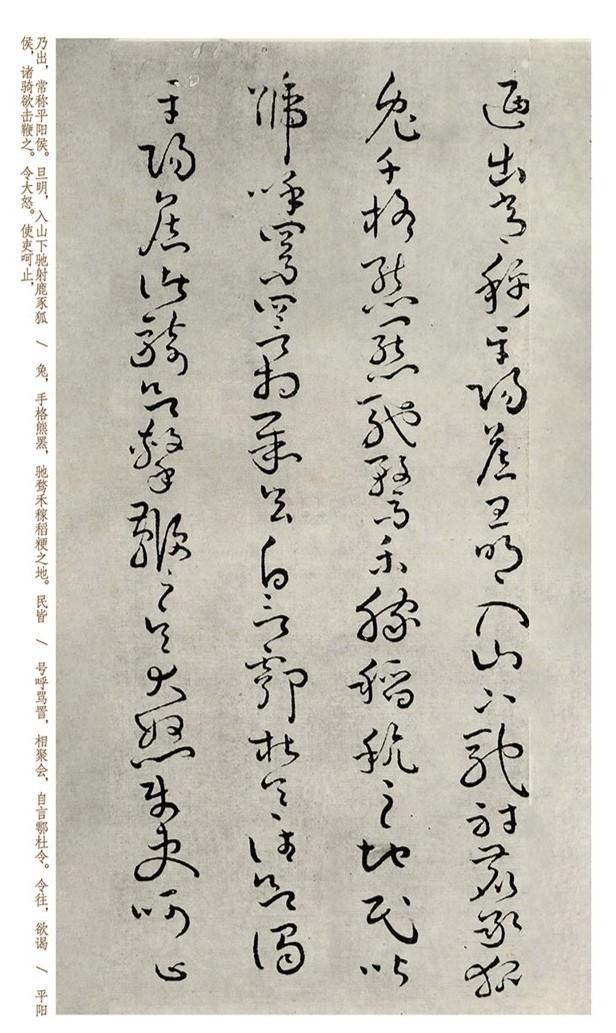 迺出常稱平陽侯旦明入山下馳射鹿豕狐
兔手格熊羆馳騖禾稼稻秔之地民皆
號呼罵詈相聚會自言鄠杜令令往欲謁
平陽侯諸騎欲擊鞭之令大怒使吏呵止
乃出，常称平阳侯。旦明，入山下驰射鹿豕狐 / 兔，手格熊罴，驰骛禾稼稻粳之地。民皆 / 号呼骂詈，相聚会，自言鄠杜令。令往，欲谒 / 平阳
侯，诸骑欲击鞭之。令大怒。使吏呵止，